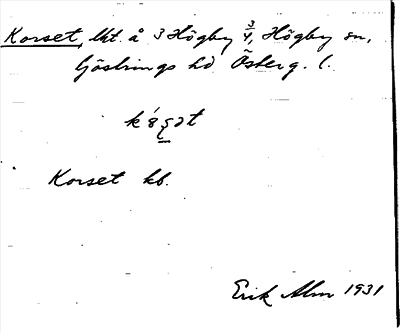 Korset, lht. å 3 Högby 3/4, Högby sn,
Göstrings hd Österg. l.
Korset kb.
Erik Alm 1931